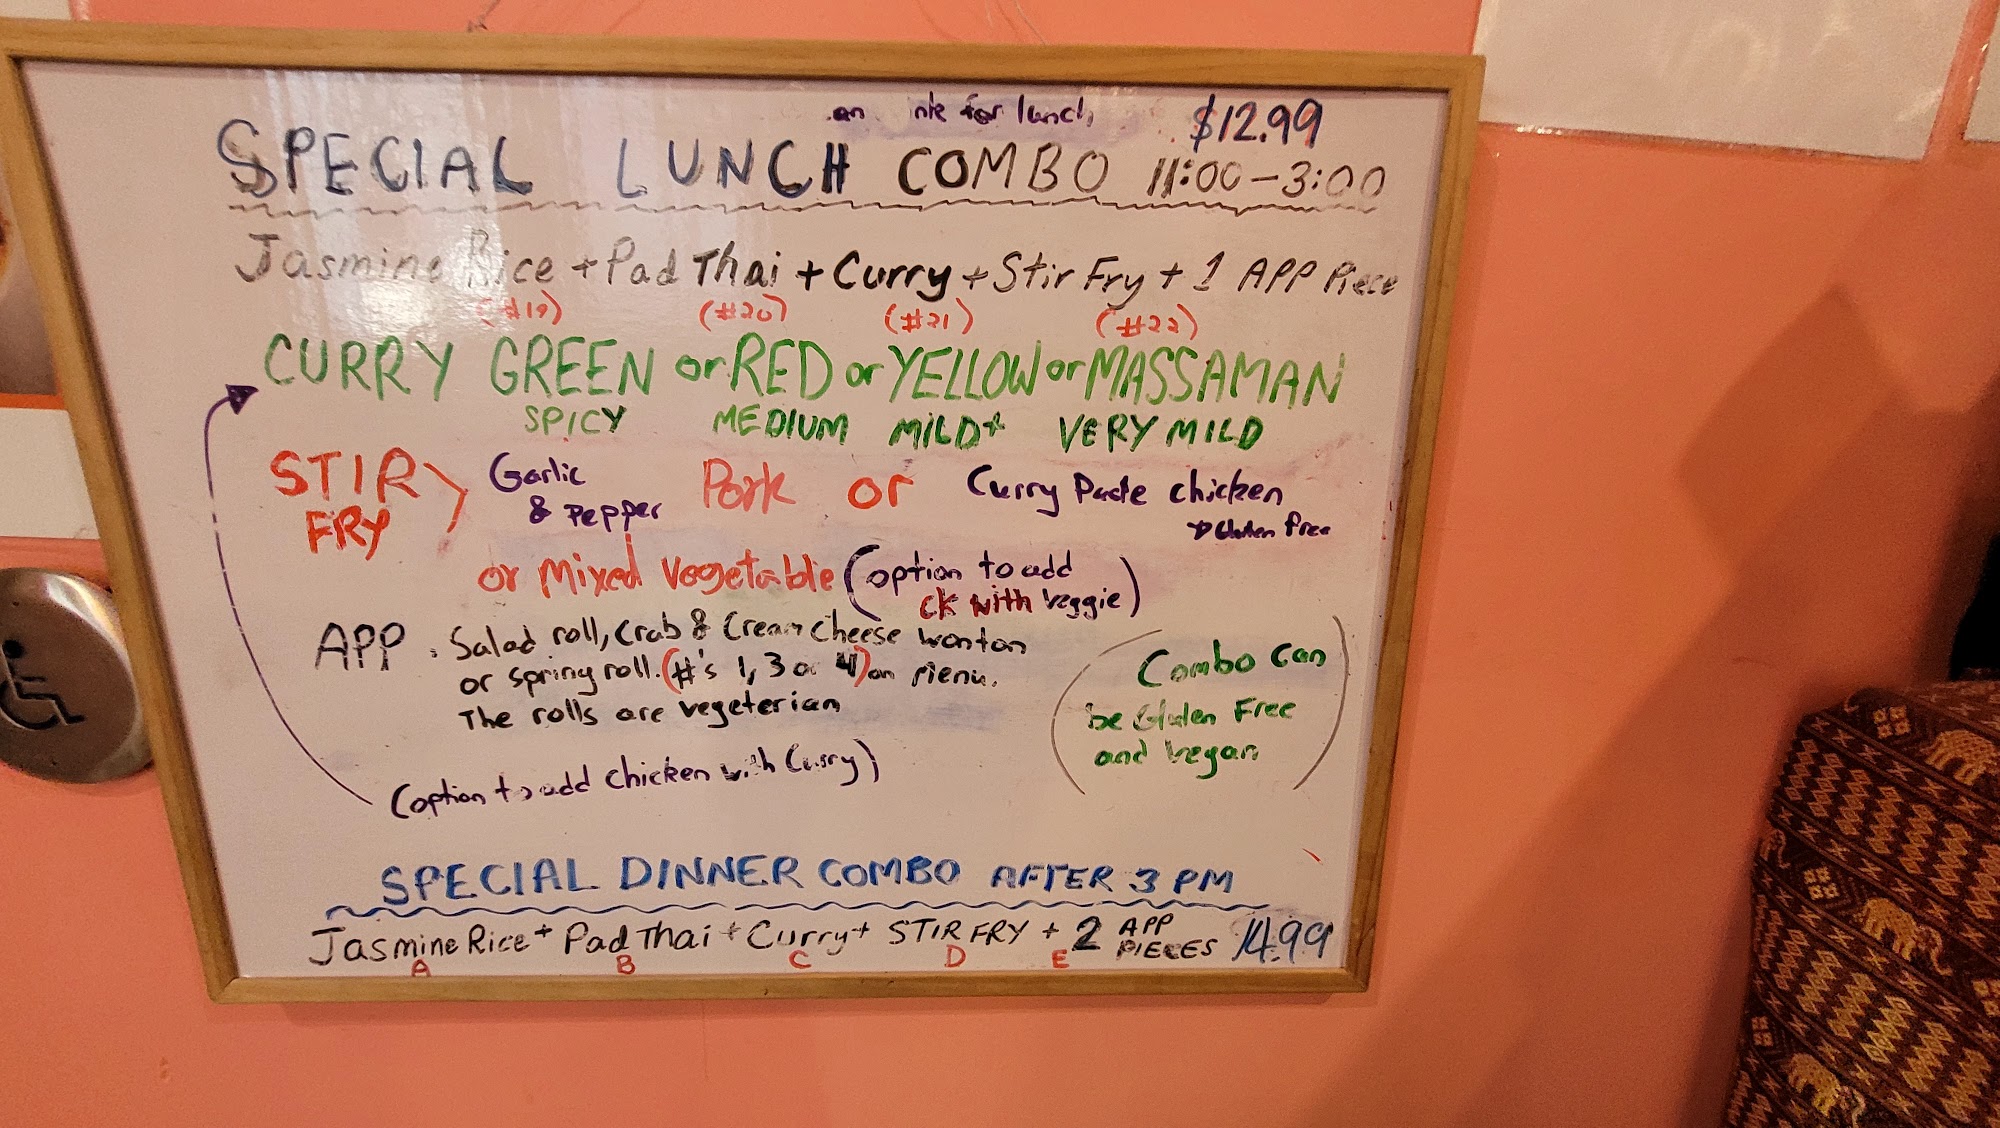 for lunch
$12.99
SPECIAL LUNCH COMBO 11:00-3:00
Jasmine Rice + Pad Thai + Curry + Stir Fry + 1 APP Piece
(#19) (#20) (#21) (#22)
CURRY GREEN or RED or YELLOW or MASSAMAN
SPICY MEDIUM MILD+ VERY MILD
STIR FRY > Garlic & Pepper Pork or Curry Paste chicken
Gluten free
or Mixed Vegetable (option to add
ck with veggie)
APP . Salad roll, Crab & Cream Cheese wonton
or spring roll. (#'s 1, 3 or 4) on Menu.
The rolls are vegeterian
Combo Can
be Gluten Free
and vegan
(option to add chicken with Curry)
SPECIAL DINNER COMBO AFTER 3 PM
Jasmine Rice + Pad Thai + Curry + STIR FRY + 2 APP PIECES 14.99
A B C D E